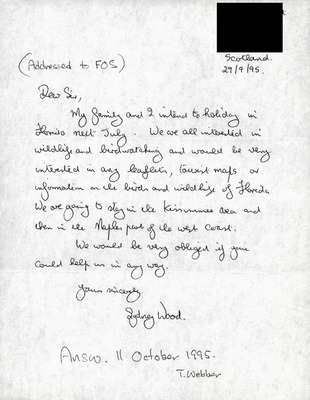 Scotland.
29/9/95.
(Addressed to FOS)
Dear Sir,
My family and I intend to holiday in
Florida next July. We are all interested in
wildlife and birdwatching and would be very
interested in any leaflets, tourist maps or
information on the birds and wildlife of Florida
We are going to stay in the Kissimmee area and
then in the Naples part of the west coast.
We would be very obliged if you
could help us in any way.
Yours sincerely
Sydney Wood.
Answ. 11 October 1995.
T. Webber